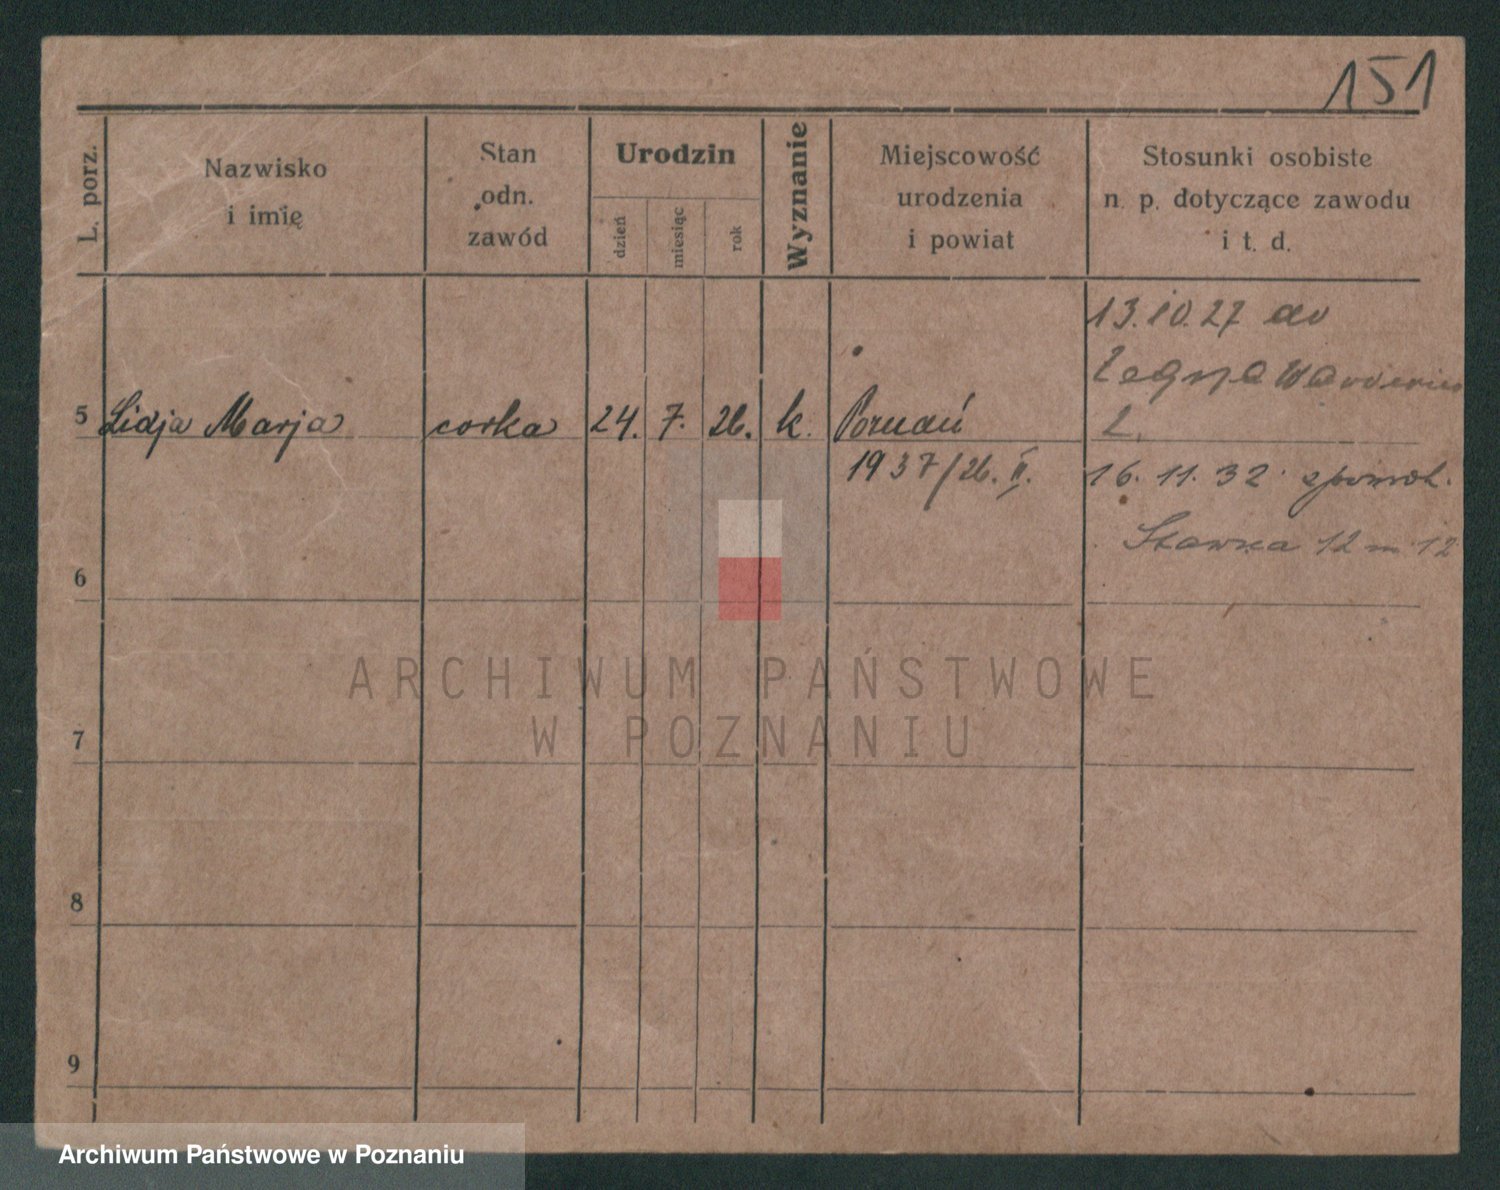 151
L. porz.
Nazwisko
i imię
Stan
odn.
zawód
Urodzin
dzień
miesiąc
rok
Wyznanie
Miejscowość
urodzenia
i powiat
Stosunki osobiste
n. p. dotyczące zawodu
i t. d.
13.10.27 do
5 Lidja Marja corka 24. 7. 26. k. Poznań
1937/26. II.
16. 11. 32
12 m 12
6
7
8
9
ARCHIWUM PAŃSTWOWE
W POZNANIU
Archiwum Państwowe w Poznaniu